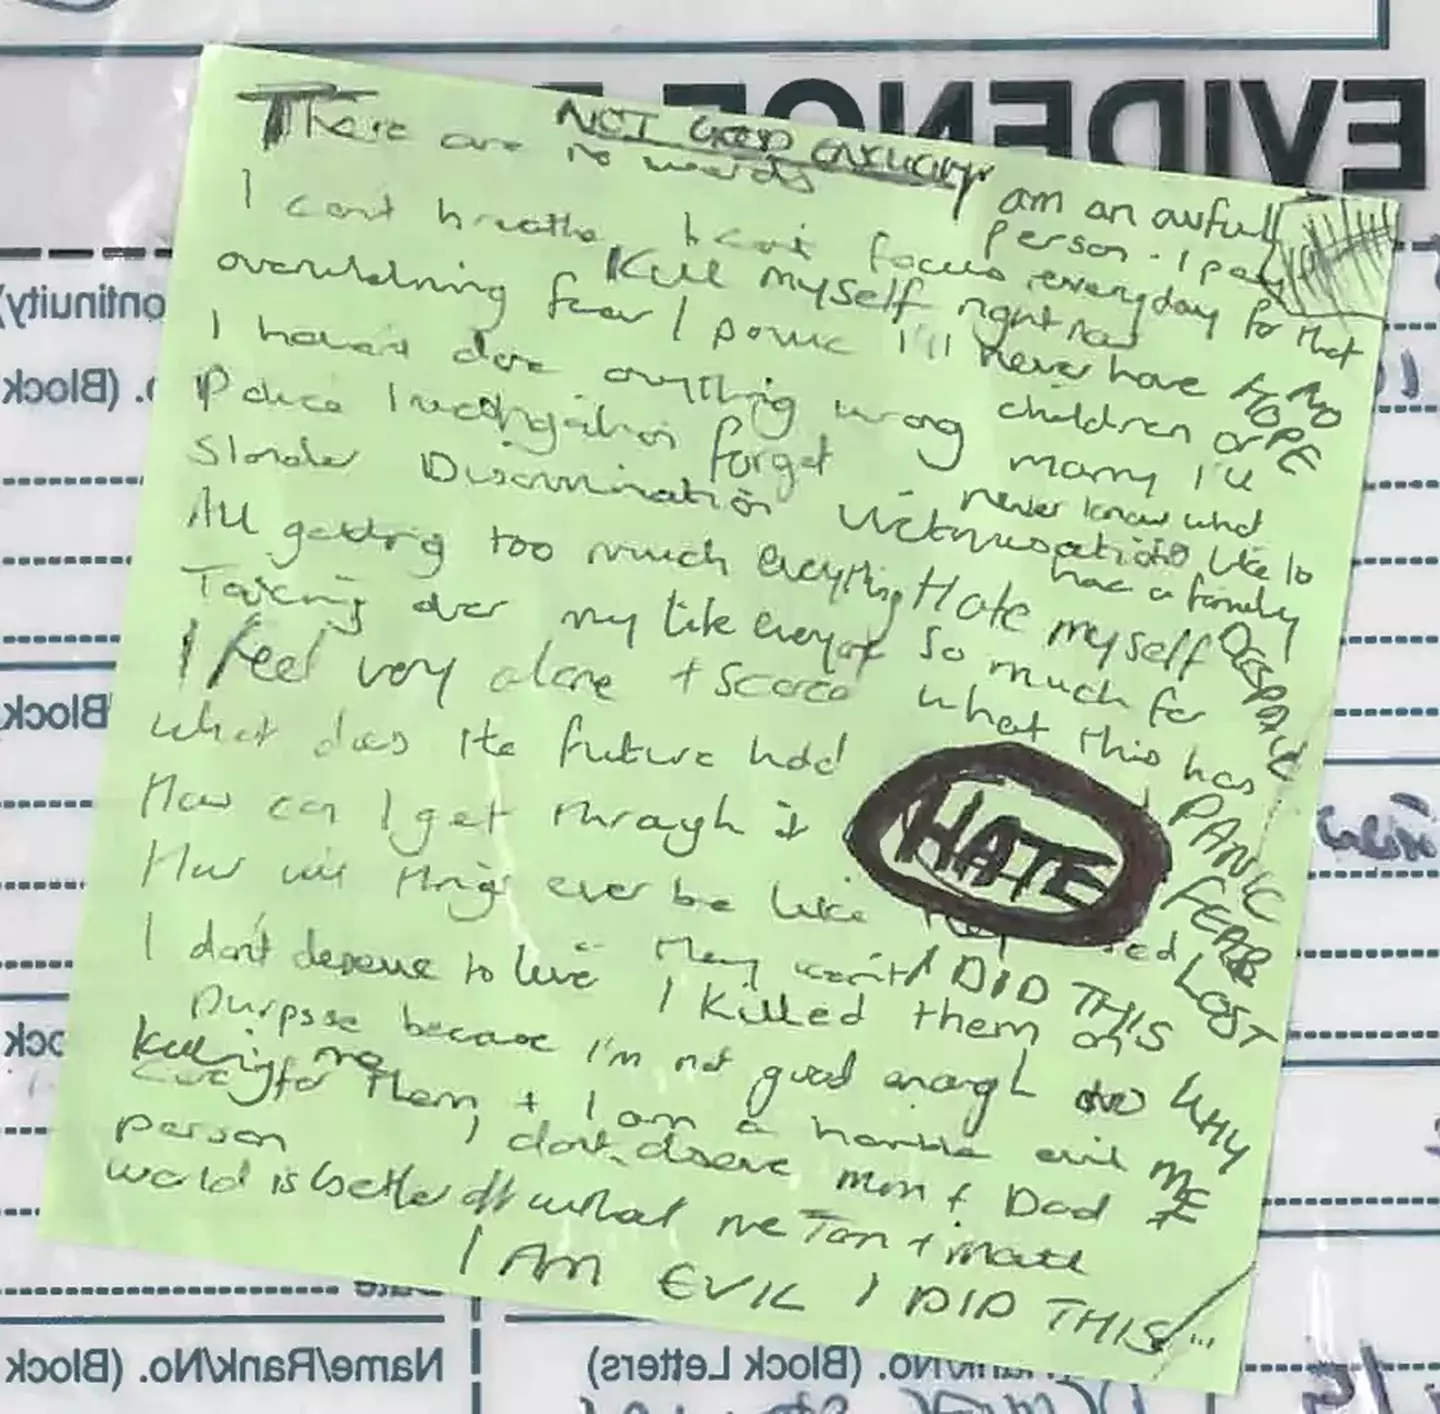 NOT GOOD ENOUGH
There are no words
I am an awful person. I pay everyday for that
I can't breathe I can't focus
Kill myself right now
overwhelming fear / panic I'll never have
NO HOPE
I haven't done anything wrong children or
Police Investigation forget marry I'll
never know what
Slander Discrimination Victimisation like to
have a family
All getting too much everything Hate myself
DESPAIR
Taking over my life everyone so much for
I feel very alone + scared what this has
what does the future hold
PANIC
How can I get through it
HATE
FEAR
How will things ever be like
LOST
I don't deserve to live They won't I DID THIS
I killed them on
purpose because I'm not good enough to
WHY ME
Killing me
care for them + I am a horrible evil
person I don't deserve mum + Dad
world is better off without me Tom + matt
I AM EVIL I DID THIS
EVIDENCE
ontinuity)
o. (Block
Block
ock
Date
Name/Rank/No. (Block
Rank/No. (Block Letters)